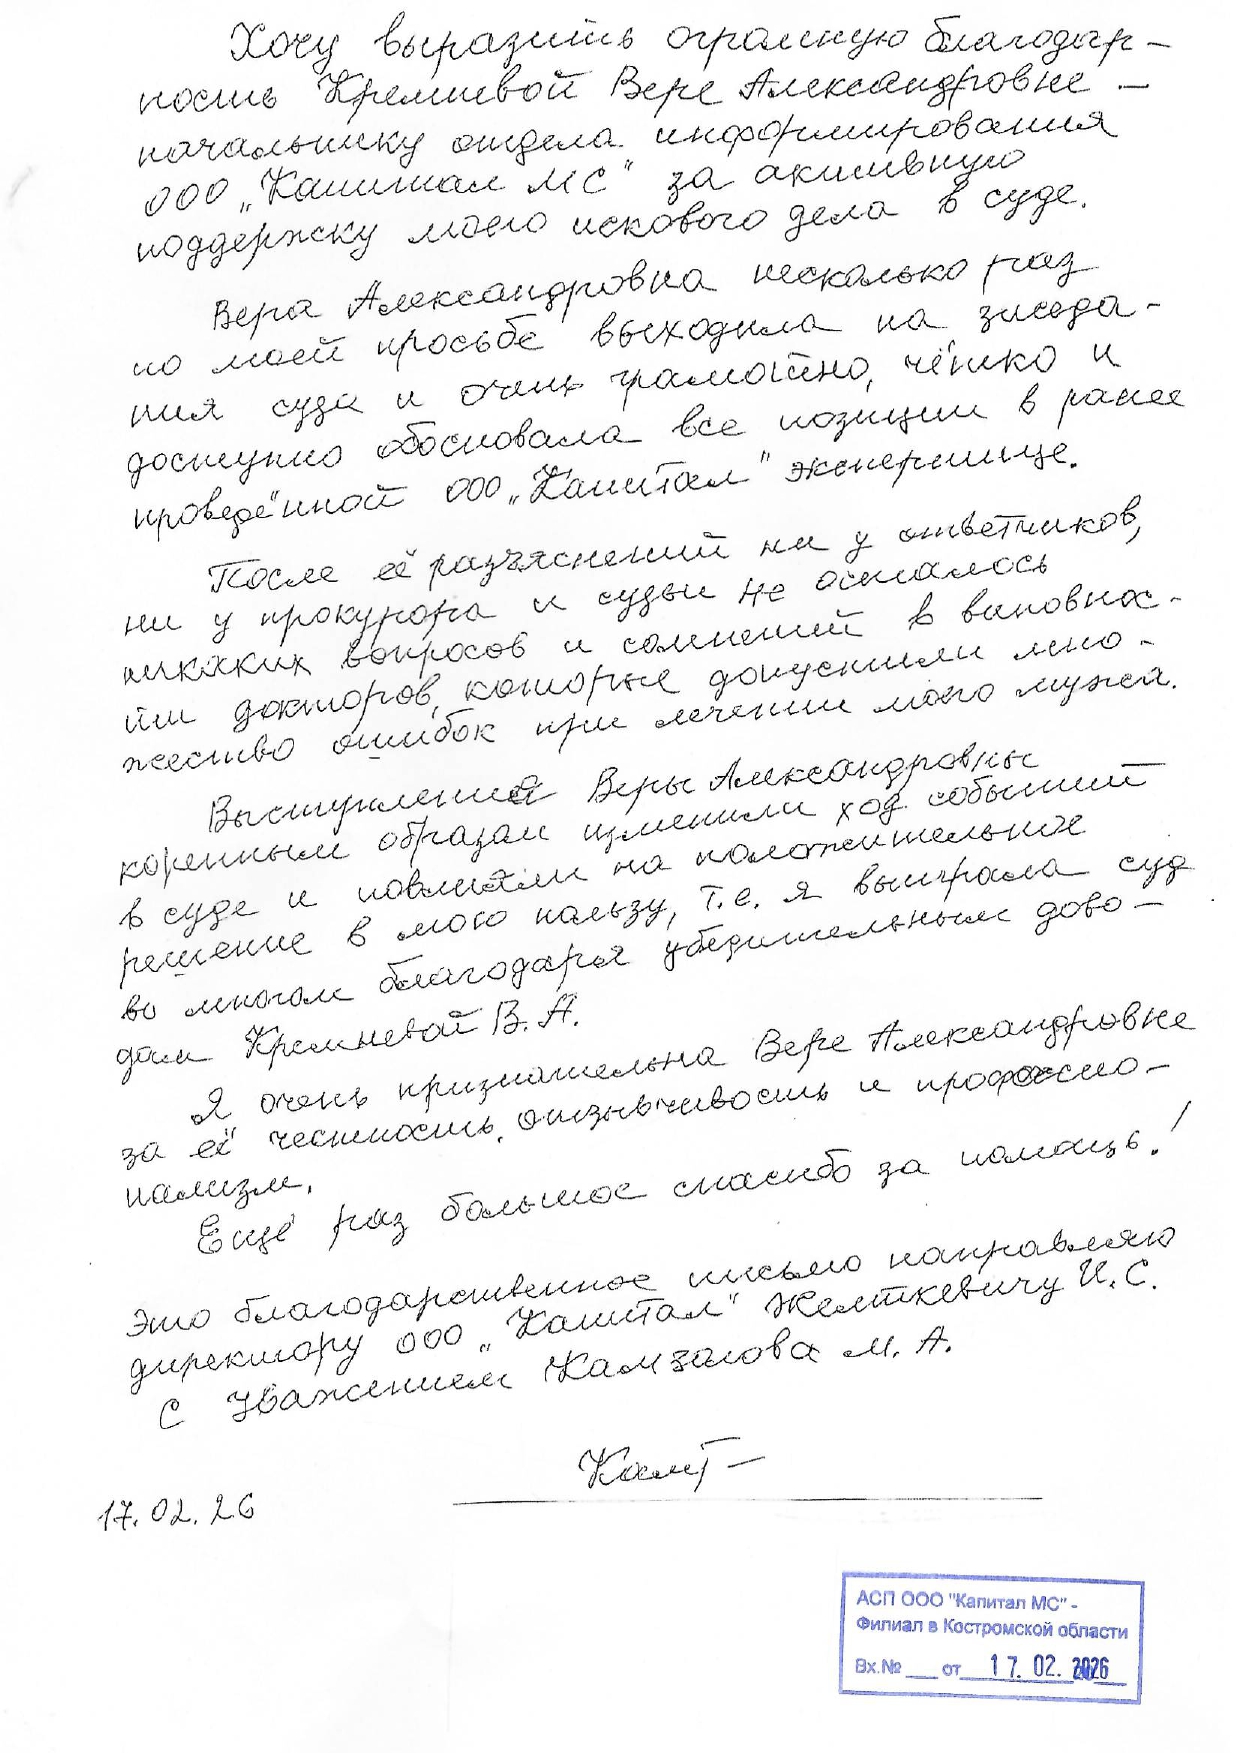 Хочу выразить огромную благодар-
ность Кремневой Вере Александровне –
начальнику отдела информирования
ООО „Капитал МС" за активную
поддержку моего искового дела в суде.
Вера Александровна несколько раз
по моей просьбе выходила на заседа-
ния суда и очень грамотно, чётко и
доступно обосновала все позиции в ранее
проведённой ООО „Капитал" экспертизе.
После её разъяснений ни у ответчиков,
ни у прокурора и судьи не осталось
никаких вопросов и сомнений в виновнос-
ти докторов, которые допустили мно-
жество ошибок при лечении моего мужа.
Выступления Веры Александровны
коренным образом изменили ход событий
в суде и повлияли на положительное
решение в мою пользу, т.е. я выиграла суд
во многом благодаря убедительным дово-
дам Кремневой В. А.
Я очень признательна Вере Александровне
за её честность, отзывчивость и профессио-
нализм.
Ещё раз большое спасибо за помощь!
Это благодарственное письмо направляю
директору ООО „Капитал" Желткевичу И. С.
С Уважением Камзалова М. А.
17. 02. 26
АСП ООО "Капитал МС" -
Филиал в Костромской области
Вх.№ ___ от 17. 02. 2026